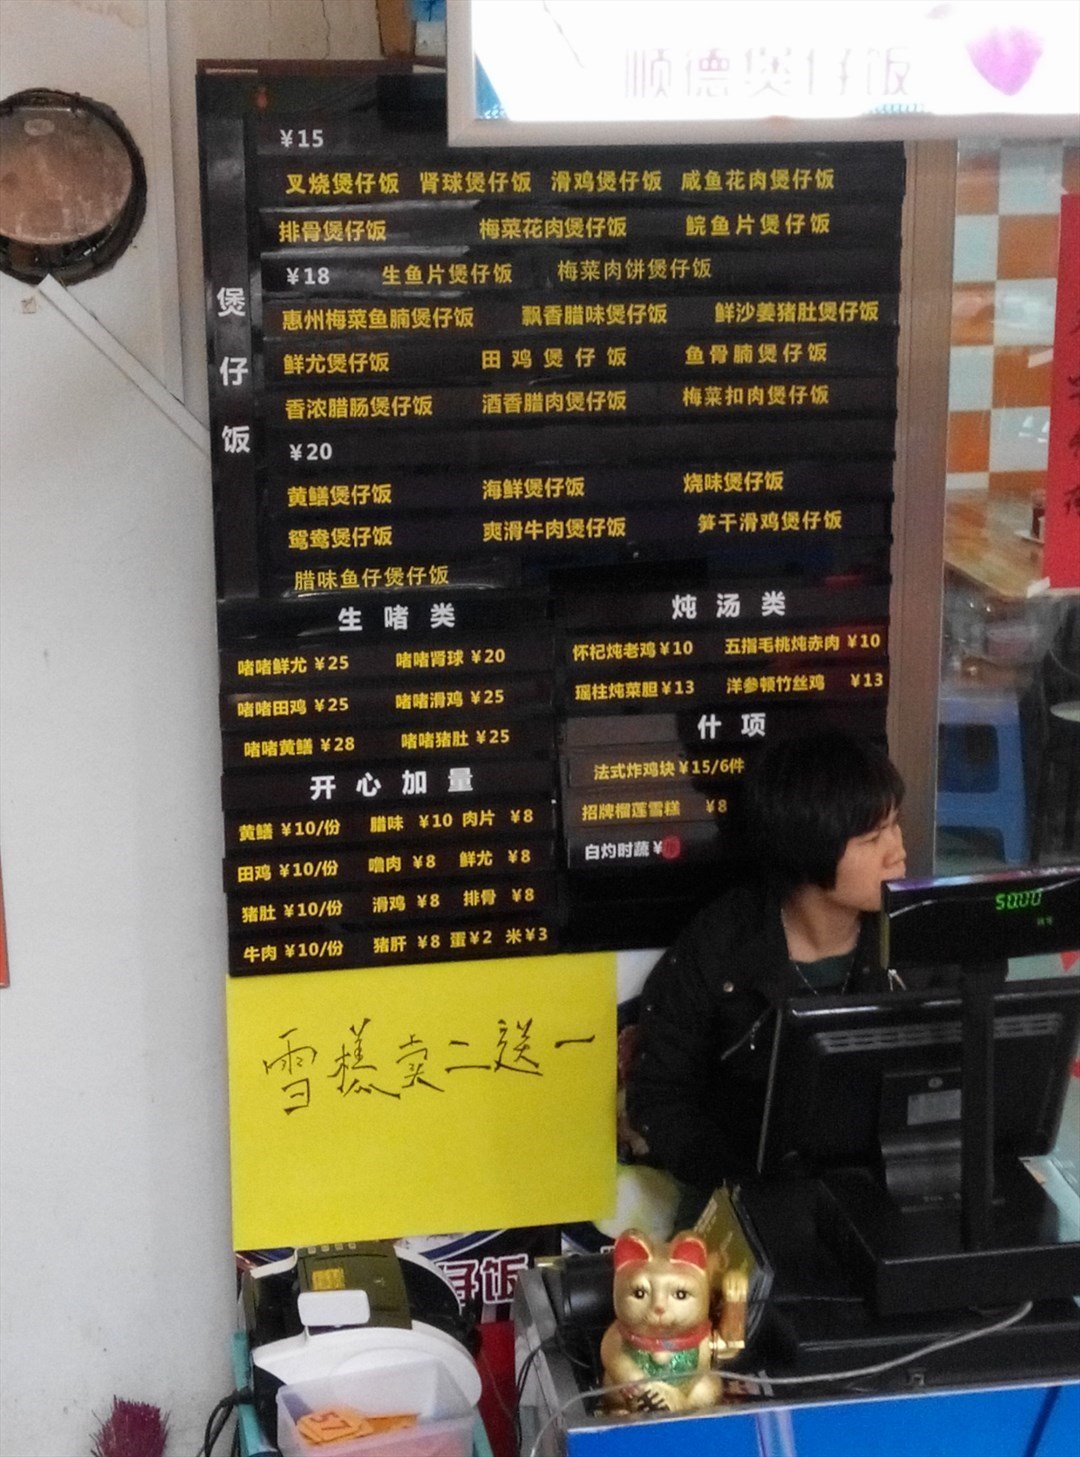 顺德煲仔饭
煲仔饭
¥15
叉烧煲仔饭 肾球煲仔饭 滑鸡煲仔饭 咸鱼花肉煲仔饭
排骨煲仔饭 梅菜花肉煲仔饭 鲩鱼片煲仔饭
¥18 生鱼片煲仔饭 梅菜肉饼煲仔饭
惠州梅菜鱼腩煲仔饭 飘香腊味煲仔饭 鲜沙姜猪肚煲仔饭
鲜尤煲仔饭 田鸡煲仔饭 鱼骨腩煲仔饭
香浓腊肠煲仔饭 酒香腊肉煲仔饭 梅菜扣肉煲仔饭
¥20
黄鳝煲仔饭 海鲜煲仔饭 烧味煲仔饭
鸳鸯煲仔饭 爽滑牛肉煲仔饭 笋干滑鸡煲仔饭
腊味鱼仔煲仔饭
生啫类
啫啫鲜尤 ¥25 啫啫肾球 ¥20
啫啫田鸡 ¥25 啫啫滑鸡 ¥25
啫啫黄鳝 ¥28 啫啫猪肚 ¥25
开心加量
黄鳝 ¥10/份 腊味 ¥10 肉片 ¥8
田鸡 ¥10/份 噜肉 ¥8 鲜尤 ¥8
猪肚 ¥10/份 滑鸡 ¥8 排骨 ¥8
牛肉 ¥10/份 猪肝 ¥8 蛋¥2 米¥3
炖汤类
怀杞炖老鸡¥10 五指毛桃炖赤肉 ¥10
瑶柱炖菜胆¥13 洋参顿竹丝鸡 ¥13
什项
法式炸鸡块¥15/6件
招牌榴莲雪糕 ¥8
白灼时蔬¥
雪糕卖二送一
50.00
仔饭